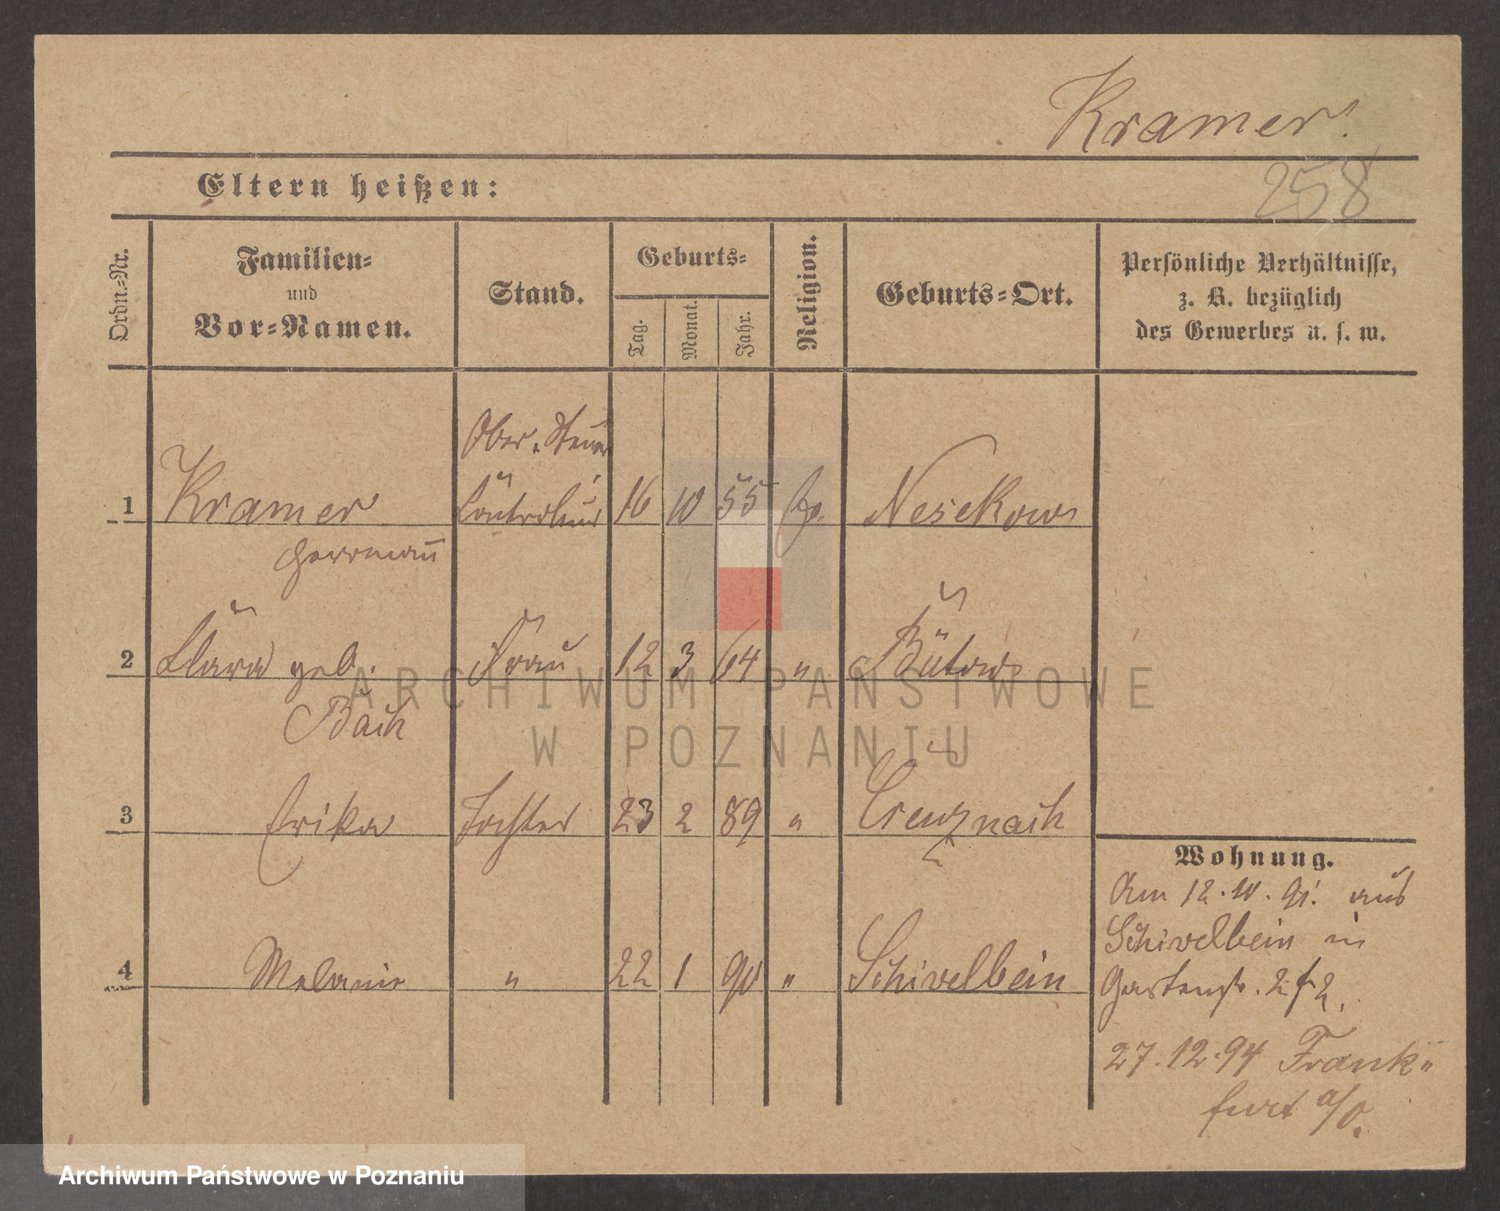 Kramer.
258
Eltern heißen:
Ordn.-Nr.
Familien-
und
Vor-Namen.
Stand.
Geburts-
Tag.
Monat.
Jahr.
Religion.
Geburts-Ort.
Persönliche Verhältnisse,
z. B. bezüglich
des Gewerbes u. s. w.
Ober-Steuer
1 Kramer Controleur 16 10 55 Nesekow
Herrmann
2 Clara geb. Frau 12 3 64 " Bütow
Bach
3 Erika Tochter 23 2 89 " Creuznach
4 Melanie " 22 1 90 " Schivelbein
Wohnung.
Am 12.10.91. aus
Schivelbein in
Gartenstr. 2
27.12.94 Frank-
furt a/O.
ARCHIWUM PAŃSTWOWE
W POZNANIU
Archiwum Państwowe w Poznaniu